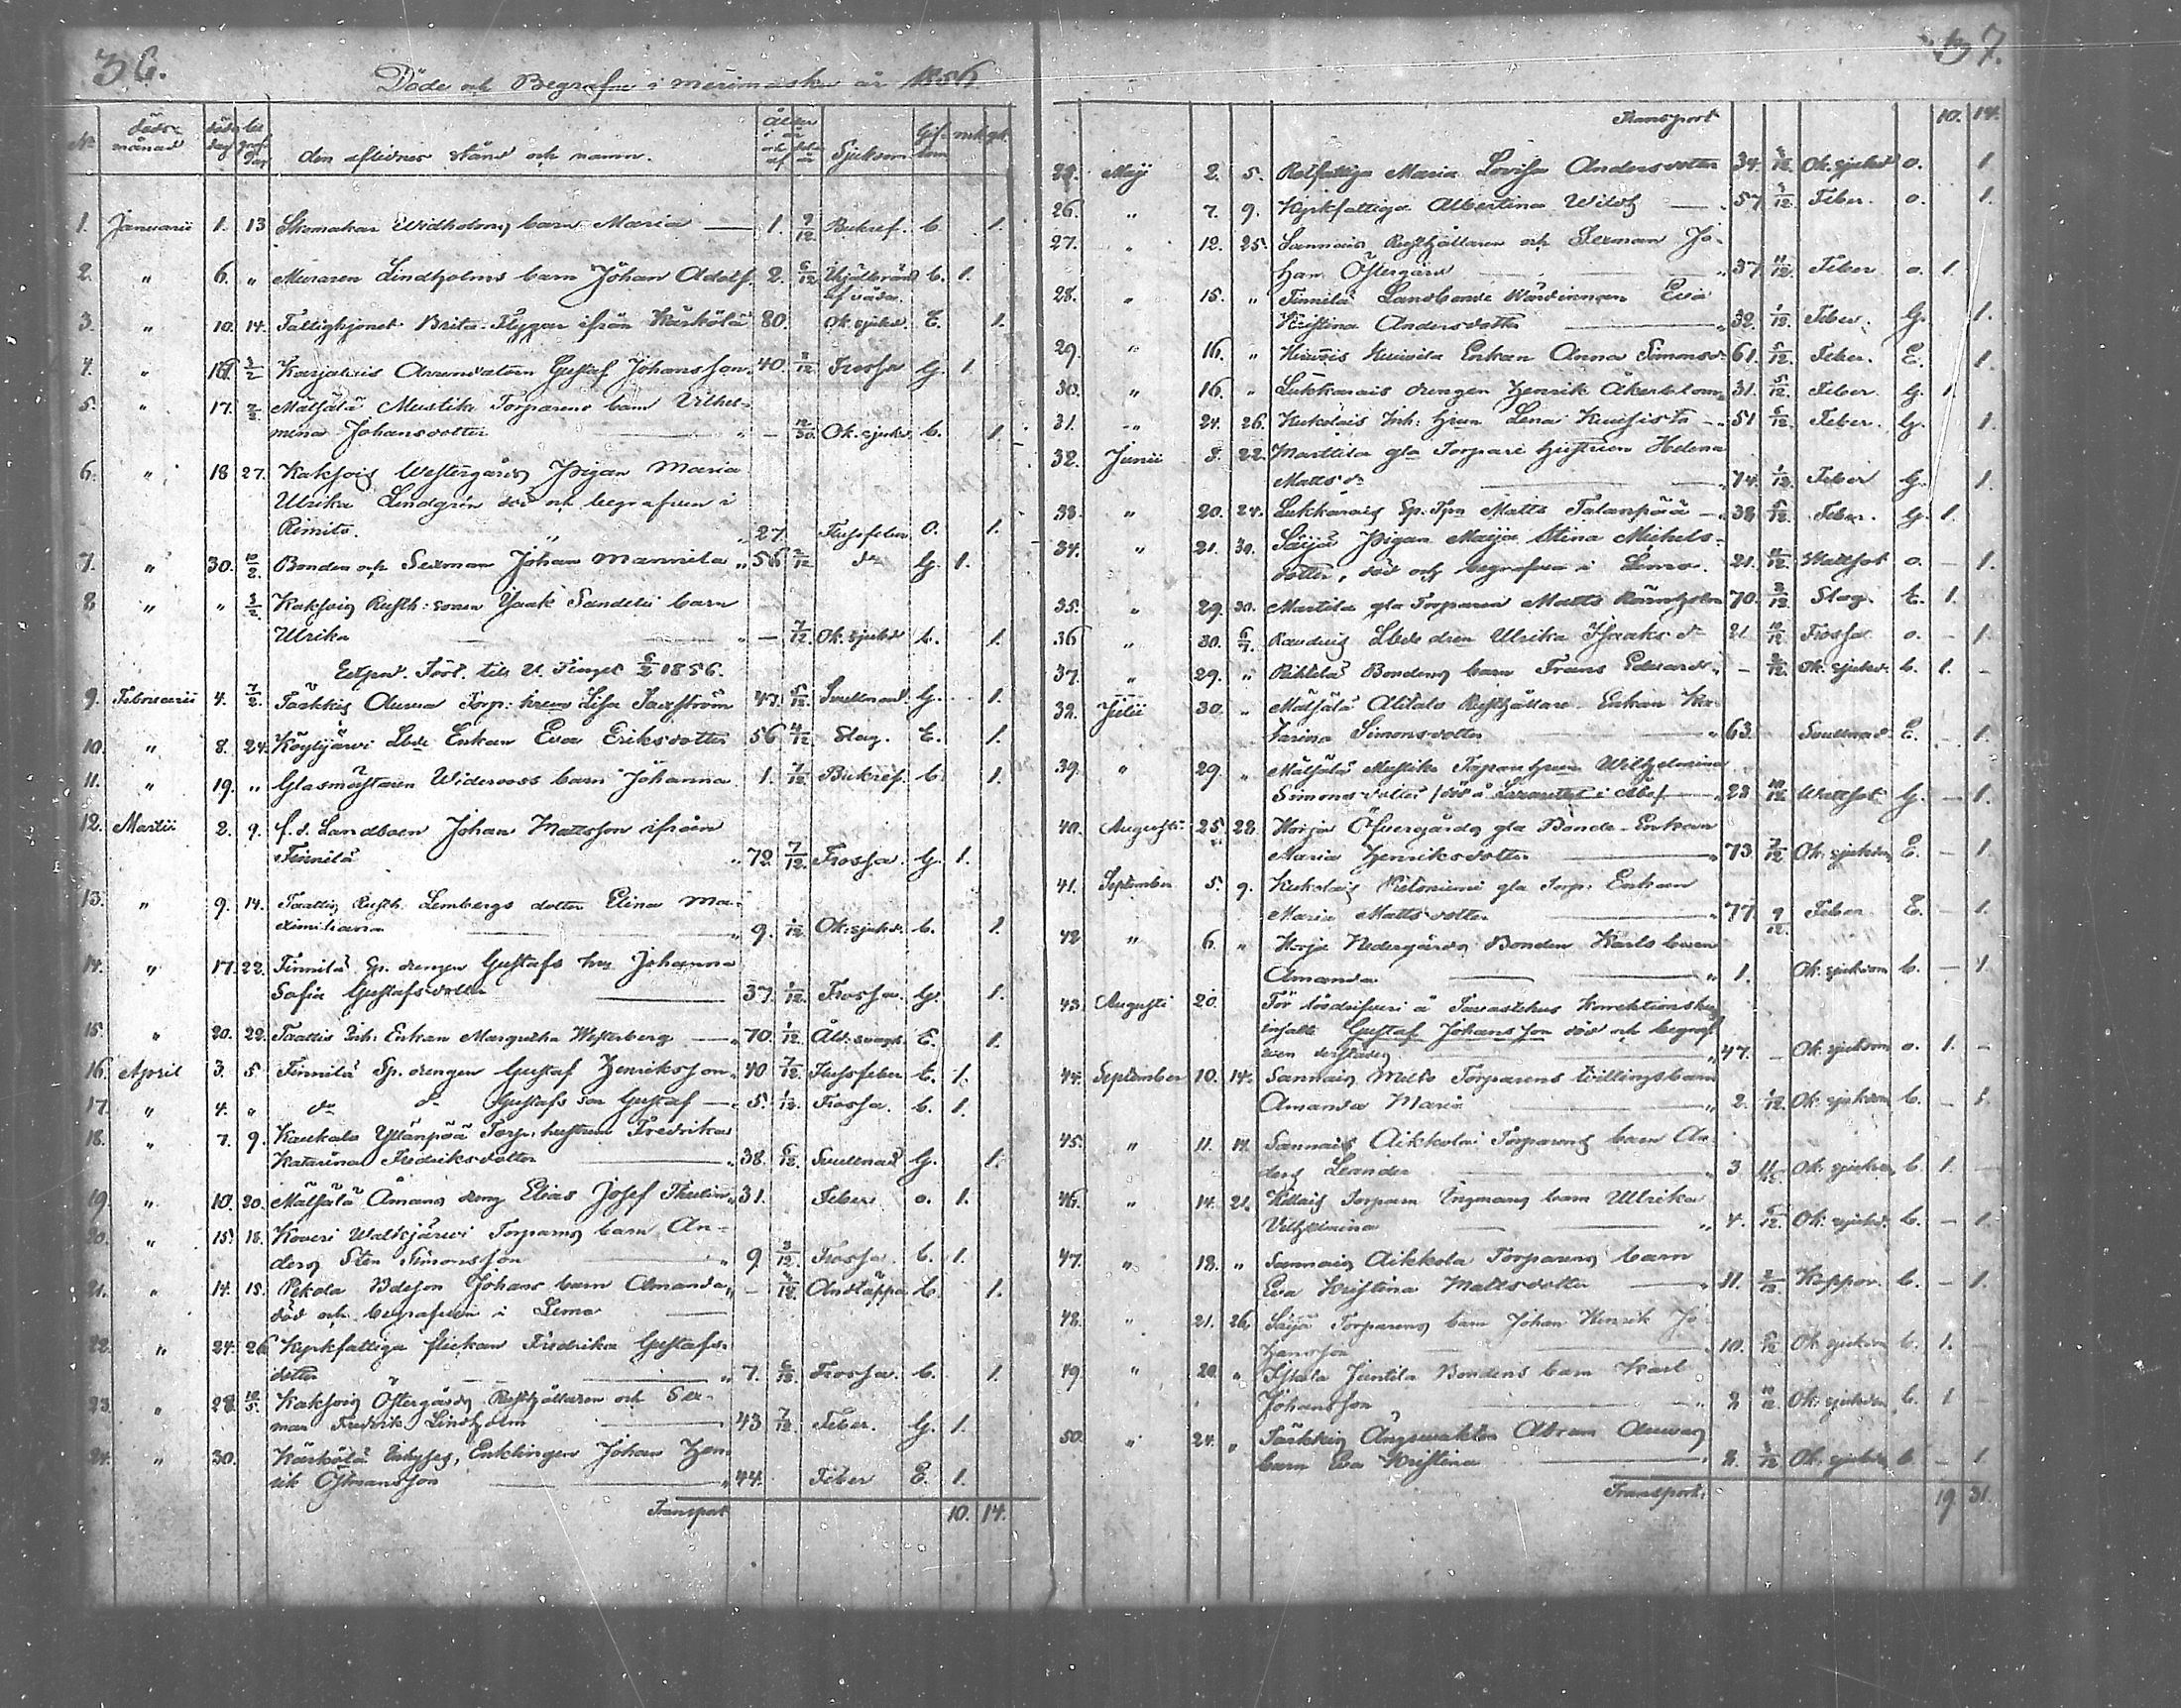 36.
Döde och Begrafne i Merimasku år 1856
No döds-månad döds dag begraf. dag den aflidnes stånd och namn. Ålder i år och delar af år Sjukdom Gif-tom mk qk
1. Januarii 1. 13 Skomakar Widholms barn Maria 1. 9/12 Bukref. b. 1.
2. " 6. " Muraren Lindholms barn Johan Adolf. 2. 6/12 Ihjälbränd b. 1.
af våda
3. " 10. 14. Fattighjonet Brita Flygar ifrån Kärkölä 80. Ok. sjukd. E. 1.
4. " 16. 3/2 Karjalais Arrendatorn Gustaf Johansson 40. 8/12 Frossa G. 1.
5. " 17. 2/2 Mälsälä Mustike Torparens barn Vilhel-
mina Johansdotter " — 12/30 Ok. sjukd. b. 1.
6. " 18 27. Kaksois Westergårds Pigan Maria
Ulrika Lindgrén död och begrafven i
Rimito. " " 27. Flussfeber O. 1.
7. " 30. 10/2. Bonden och Sexman Johan Mannila " 56 2/12 do G. 1.
8. " " 3/2 Kaksois Rusth: sonen Isaak Sandelii barn
Ulrika " — 7/12 Ok. sjukd b. 1.
Extrad. Fört. till V. Tinget 6/2 1856.
9. Februarii 4. 7/2. Tärkkis Torp: hren Lisa Saxström 47. 5/12 Svullnad. G. 1.
10. " 8. 24. Köylijärvi Lbde Enkan Eva Eriksdotter 56 4/12 Slag. E. 1.
11. " 19. " Glasmästaren Wideroos barn Johanna 1. 7/12 Bukref. b. 1.
12. Martii 2. 9. f. d. Landboen Johan Mattsson ifrån
Finnilä " 72. 7/12. Frossa. G. 1.
13. " 9. 14. Taattis Rusth. Lembergs dotter Elina Ma-
ximiliana " 9. 1/12 Ok: sjukd. b. 1.
14. " 17. 22. Finnilä Sp. drengen Gustafs hu Johanna
Sofia Gustafsdotter 37. 1/12. Frossa. G. 1.
15. " 20. 22. Taattis Inh: Enkan Margretha Westerberg " 70. 1/12. Åld. svagh. E. 1.
16. April 3. 5. Finnilä Sp. drengen Gustaf Henriksson 40 7/12. Flussfeber E. 1.
17. " 4. " do do Gustafs son Gustaf 5. 1/12. Frossa. b. 1.
18. " 7. 9. Kaukala Yllänpää Torp. hustrun Fredrika
Katarina Fredriksdotter " 38. 6/12. Svullnad G. 1.
19. " 10. 20. Mälsälä Åmans dreng Elias Josef Thulin " 31. Feber o. 1.
20. " 15. 18. Koveri Walkjärvi Torparns barn An-
ders Sten Simonsson " 9 3/12 Frossa. b. 1.
21. " 14. 15. Pikola Bdeson Johans barn Amanda " — 4/12 Andtäppa b. 1.
död och begrafven i Lemo
22. " 24. 26. Kyrkfattiga flickan Fredrika Gustafs-
dotter " 7. 6/12 Frossa. b. 1.
23. " 28. 10/5. Kaksois Östergårds Rusthållaren och Sex-
man Fredrik Lindholm 43 7/12 Feber. G. 1.
24. " 30. Kärkölä Inhyses, Enklingen Johan Hen-
rik Östmansson " 44. Feber E. 1.
Transport 10. 14.
37.
Transport 10. 14.
25. Maji 2. 5. Rotfattiga Maria Lovisa Andersdotter 34. Ok. sjukd o. 1.
26. " 7. 9. Kyrkfattiga Albertina 57. Feber. o. 1.
27. " 12. 25. Sannais Rusthållaren och Sexman Jo-
han Östergård " 37 11/12. Feber o. 1.
28. " 15. " Finnilä Landbonde Wärdinnan Eva
Kristina Andersdotter " 32. 1/12. Feber. G. 1.
29. " 16. " Enkan Anna Simonsdr 61. 5/12. Feber. E. 1.
30. " 16. " Lukkarais drengen Henrik Åkerblom 31. 5/12. Feber G. 1.
31. " 24. 26. Kukolais Inh: hrun Lena Kuusisto " 51 6/12. Feber. G. 1.
32. Junii 8. 22. Marttila gla Torpare hustrun Helena
Matts dr " 74. 1/12. Feber G. 1.
33. " 20. 24. Lukkarais Sp. Tprn Matts Talanpää " 38 5/12. Feber. G. 1.
34. " 21. 30. Särjä Pigan Maija Stina Michels-
dotter, död och begrafven i Lemo. 21. Wattsot o. — 1.
35. " 29. 30. Martila gla Torparen Matts 70. 3/12. Slag. E. 1.
36 " 30. 6/7. Raudais Lbde dren Ulrika Isaaks dr 21. 10/12 Frossa o. — 1.
37. " 29. " Riktilä Bondens barn Frans Edvard " — 2/12. Ok. sjukd. b. 1. —
32. Julii 30. " Mälsälä Alitalo Rusthållare Enkan Ka-
tarina Simonsdotter " 63. Svullnad. E. — 1.
39. " 29. " Mälsälä Mustike Torpar hrun Wilhelmina
Simonsdotter (död å Lazarettet i Åbo) 23 10/12 Wattsot G. — 1.
40. Augusti 25 28. Horja Öfvergårds gla Bonde Enkan
Maria Henriksdotter " 73. 7/12 Ok. sjukdom E. — 1.
41. September 5. 9. Kukolais Niitoniemi gla Torp. Enkan
Maria Mattsdotter " 77. 9/12. Feber E. — 1.
42 " 6. " Horja Nedergårds Bonden Karls barn
Amanda " 1. Ok. sjukdom b. — 1.
43. Augusti 20. För lösdrifveri å Tavastehus Korrektionshus
insatte Gustaf Johansson död och begraf-
ven derstädes " 47. — Ok. sjukdom o. 1. —
44. September 10. 14. Sannais Torparens tvillingsbarn
Amanda Maria " 2. 1/12. Ok. sjukdom b. — 1.
45. " 11. 14. Sannais Aikkola Torparens barn An-
ders Leander " 3 11/12 Ok. sjukdom b. 1. —
46. " 14. 21. Killais Torparn Ingmans barn Ulrika
Vilhelmina " 4. 6/12. Ok. sjukd. b. — 1.
47. " 18. " Sannais Aikkola Torparens barn
Eva Kristina Mattsdotter " 11. Koppor. b. — 1.
48. " 21. 26. Särjä Torparens barn Johan Henrik Jo-
hansson " 10. Ok sjukdom b. 1. —
49 " 20. " Iskala Juntila Bondens barn Karl
Johansson " 2 10/12 Ok. sjukdom b. 1 —
50. " 24. " Tärkkis Ängsvakten Abram
barn Eva Kristina " 2. Ok. sjukdom b. — 1.
Transport. 19. 31.